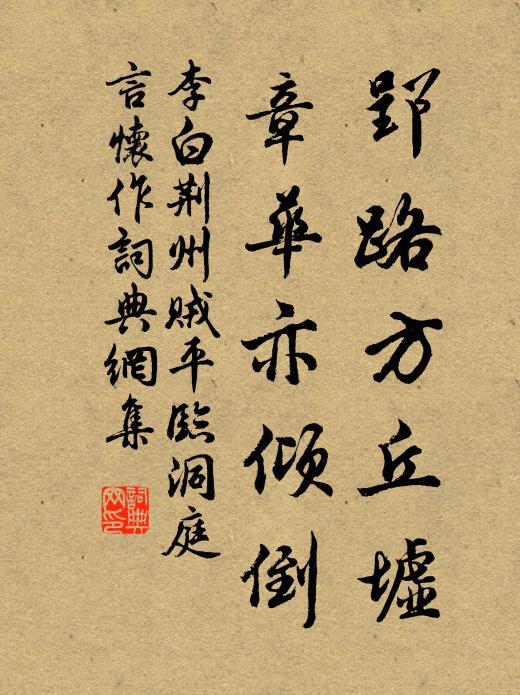 郢路方丘墟
章華亦傾倒
李白荆州賊平臨洞庭
言懷作詞典網集
詞典
网印